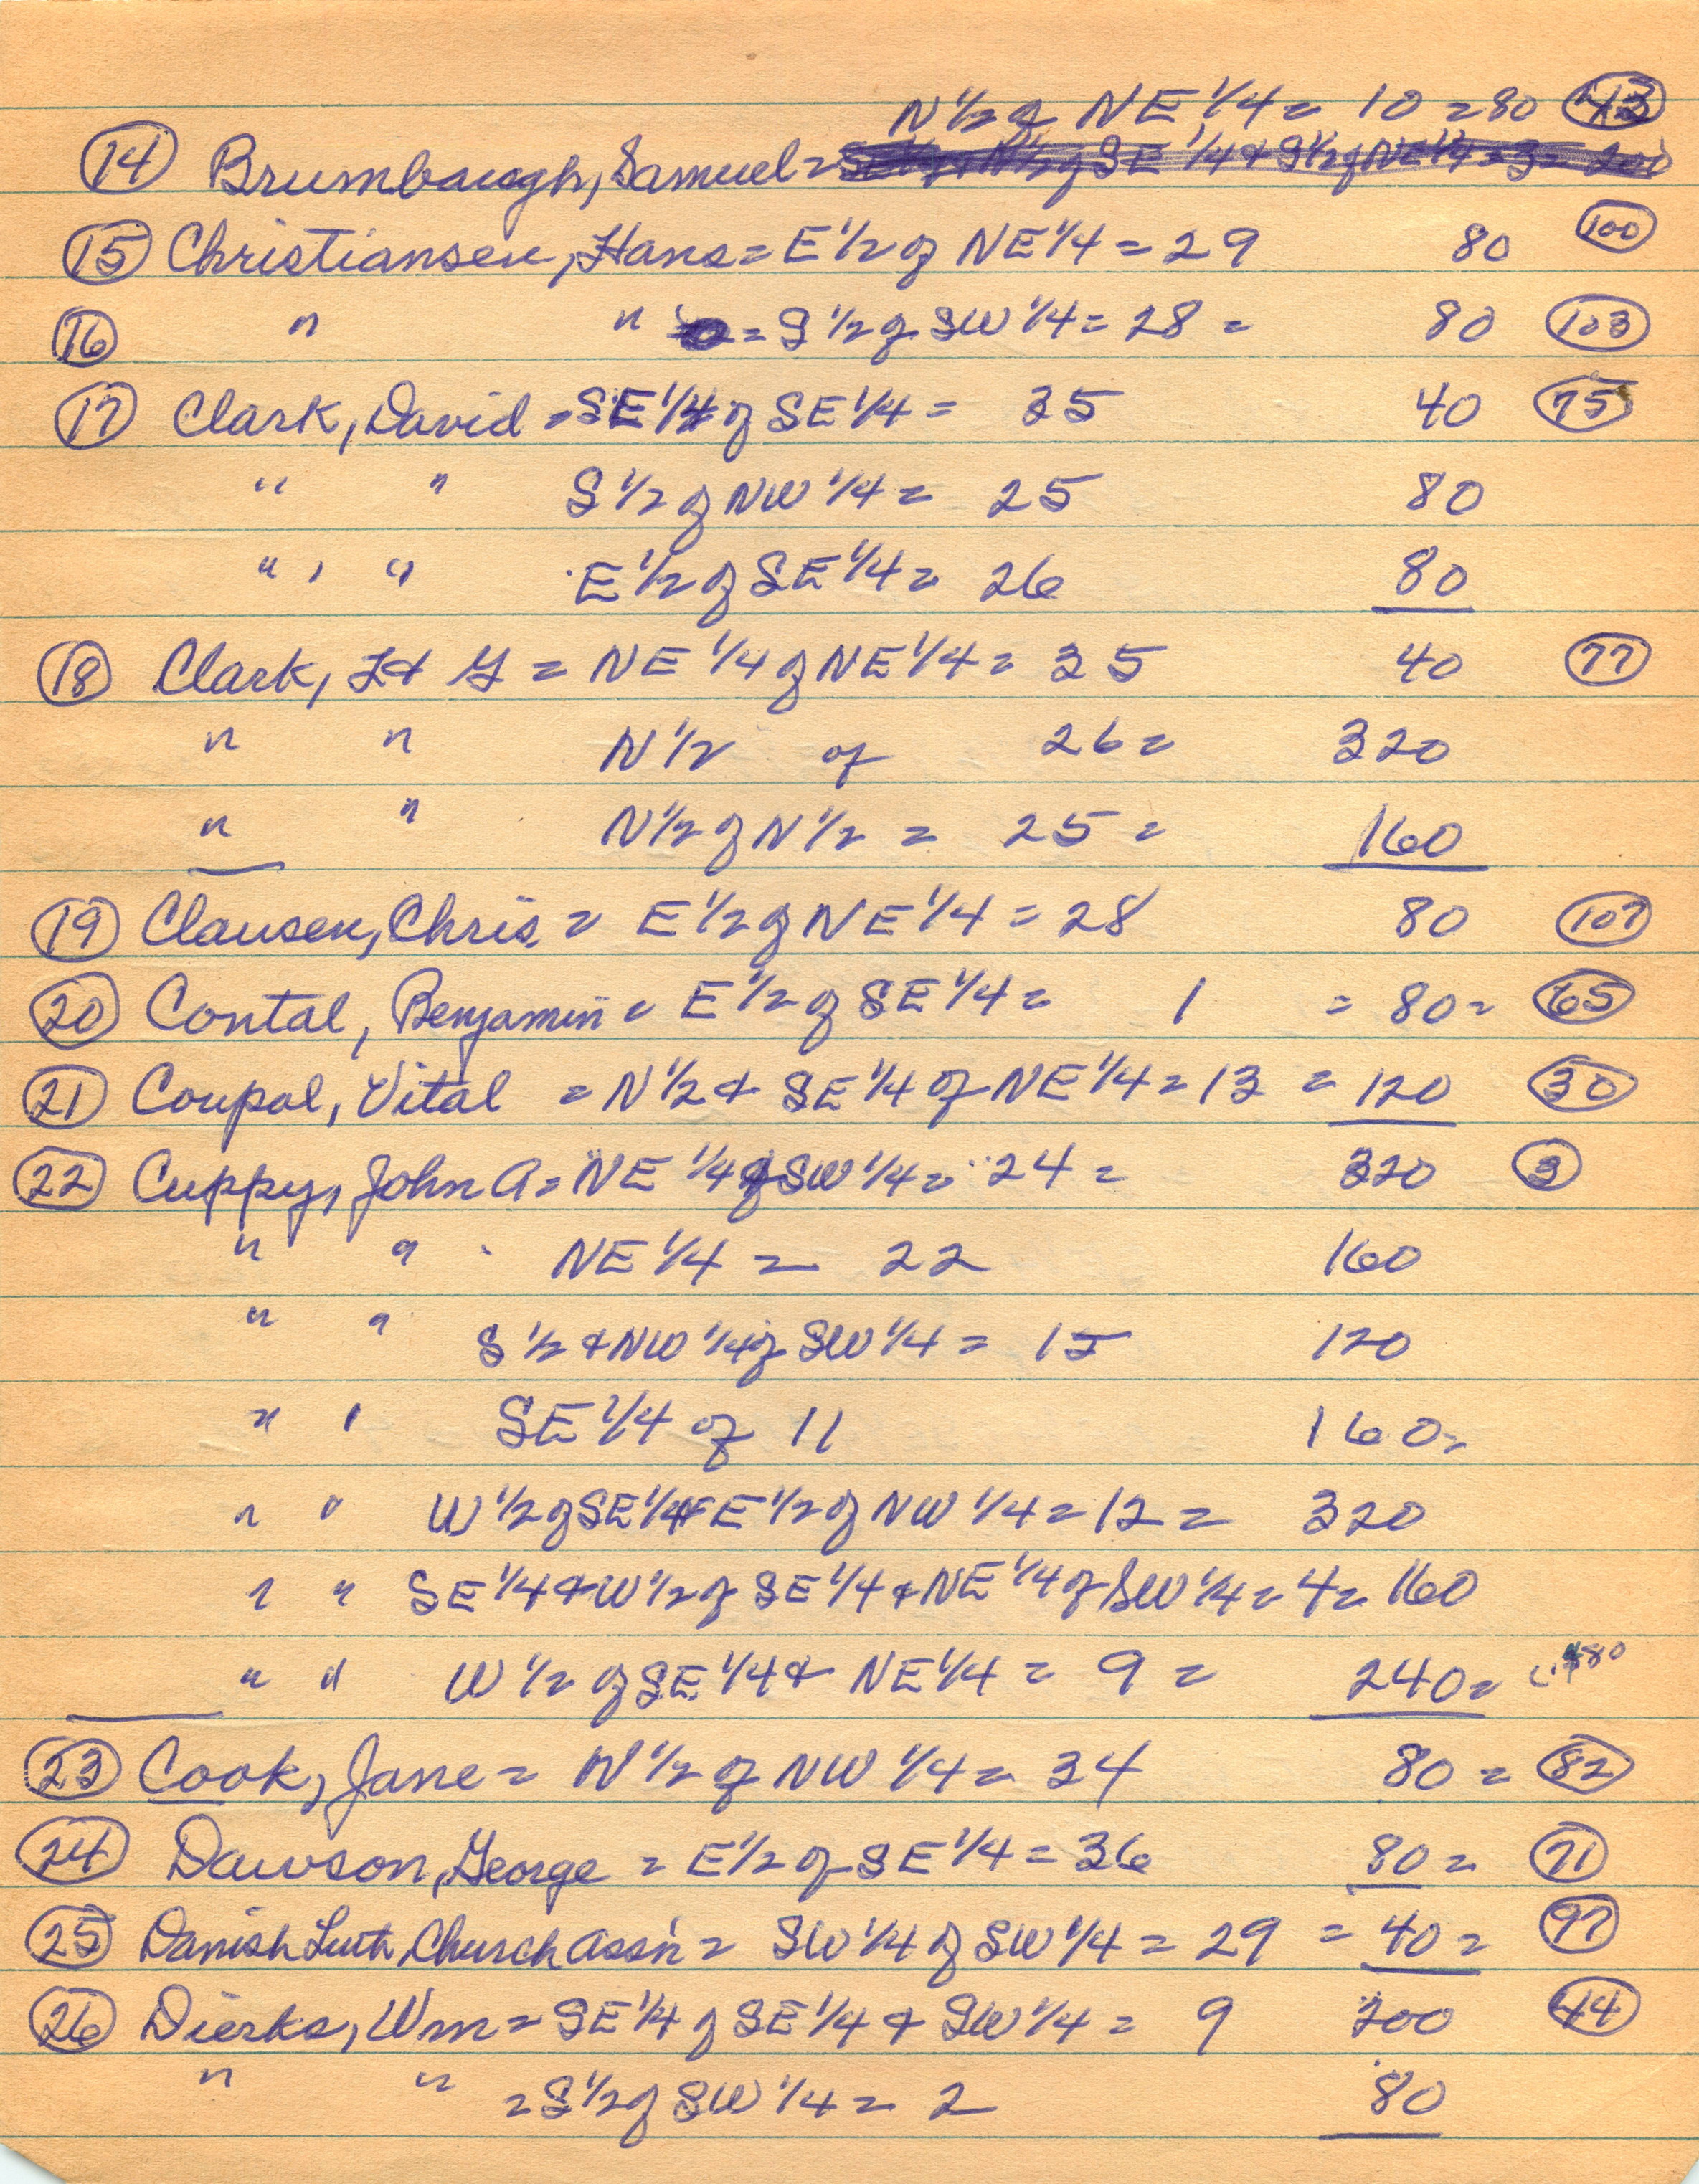 N 1/2 of NE 1/4 = 10 = 80 43
14 Brumbaugh, Samuel = N 1/2 of SE 1/4 & S 1/2 of NE 1/4 = 3 = 200
15 Christiansen, Hans = E 1/2 of NE 1/4 = 29 80 100
16 " " = S 1/2 of SW 1/4 = 28 = 80 103
17 Clark, David = SE 1/4 of SE 1/4 = 35 40 75
" " S 1/2 of NW 1/4 = 25 80
" " E 1/2 of SE 1/4 = 26 80
18 Clark, I & G = NE 1/4 of NE 1/4 = 35 40 77
" " N 1/2 of 26 = 320
" " N 1/2 of N 1/2 = 25 = 160
19 Clausen, Chris = E 1/2 of NE 1/4 = 28 80 107
20 Contal, Benjamin = E 1/2 of SE 1/4 = 1 = 80 = 65
21 Coupal, Vital = N 1/2 & SE 1/4 of NE 1/4 = 13 = 120 30
22 Cuppy, John A = NE 1/4 & SW 1/4 = 24 = 320 3
" " NE 1/4 = 22 160
" " S 1/2 & NW 1/4 of SW 1/4 = 15 120
" " SE 1/4 of 11 160 =
" " W 1/2 of SE 1/4 & E 1/2 of NW 1/4 = 12 = 320
" " SE 1/4 & W 1/2 of SE 1/4 & NE 1/4 of SW 1/4 = 4 = 160
" " W 1/2 of SE 1/4 & NE 1/4 = 9 = 240 =
23 Cook, Jane = N 1/2 of NW 1/4 = 34 80 = 82
24 Dawson, George = E 1/2 of SE 1/4 = 36 80 = 71
25 Danish Luth, Church Ass'n = SW 1/4 of SW 1/4 = 29 = 40 = 97
26 Dierks, Wm = SE 1/4 of SE 1/4 & SW 1/4 = 9 200 44
" " = S 1/2 of SW 1/4 = 2 80